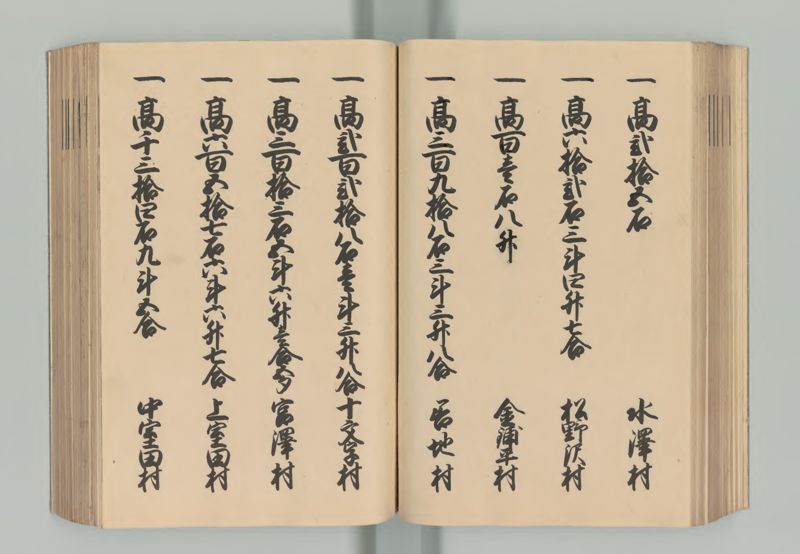 一 高弐拾五石 水澤村
一 高六拾弐石三斗四升七合 松野沢村
一 高百壱石八升 金浦平村
一 高三百九拾八石三斗三升八合 岩地村
一 高弐百弐拾八石壱斗三升八合 十文字村
一 高三百拾三石五斗六升壱合五夕 宮澤村
一 高六百五拾七石六斗六升七合 上室田村
一 高千三拾四石九斗五合 中室田村